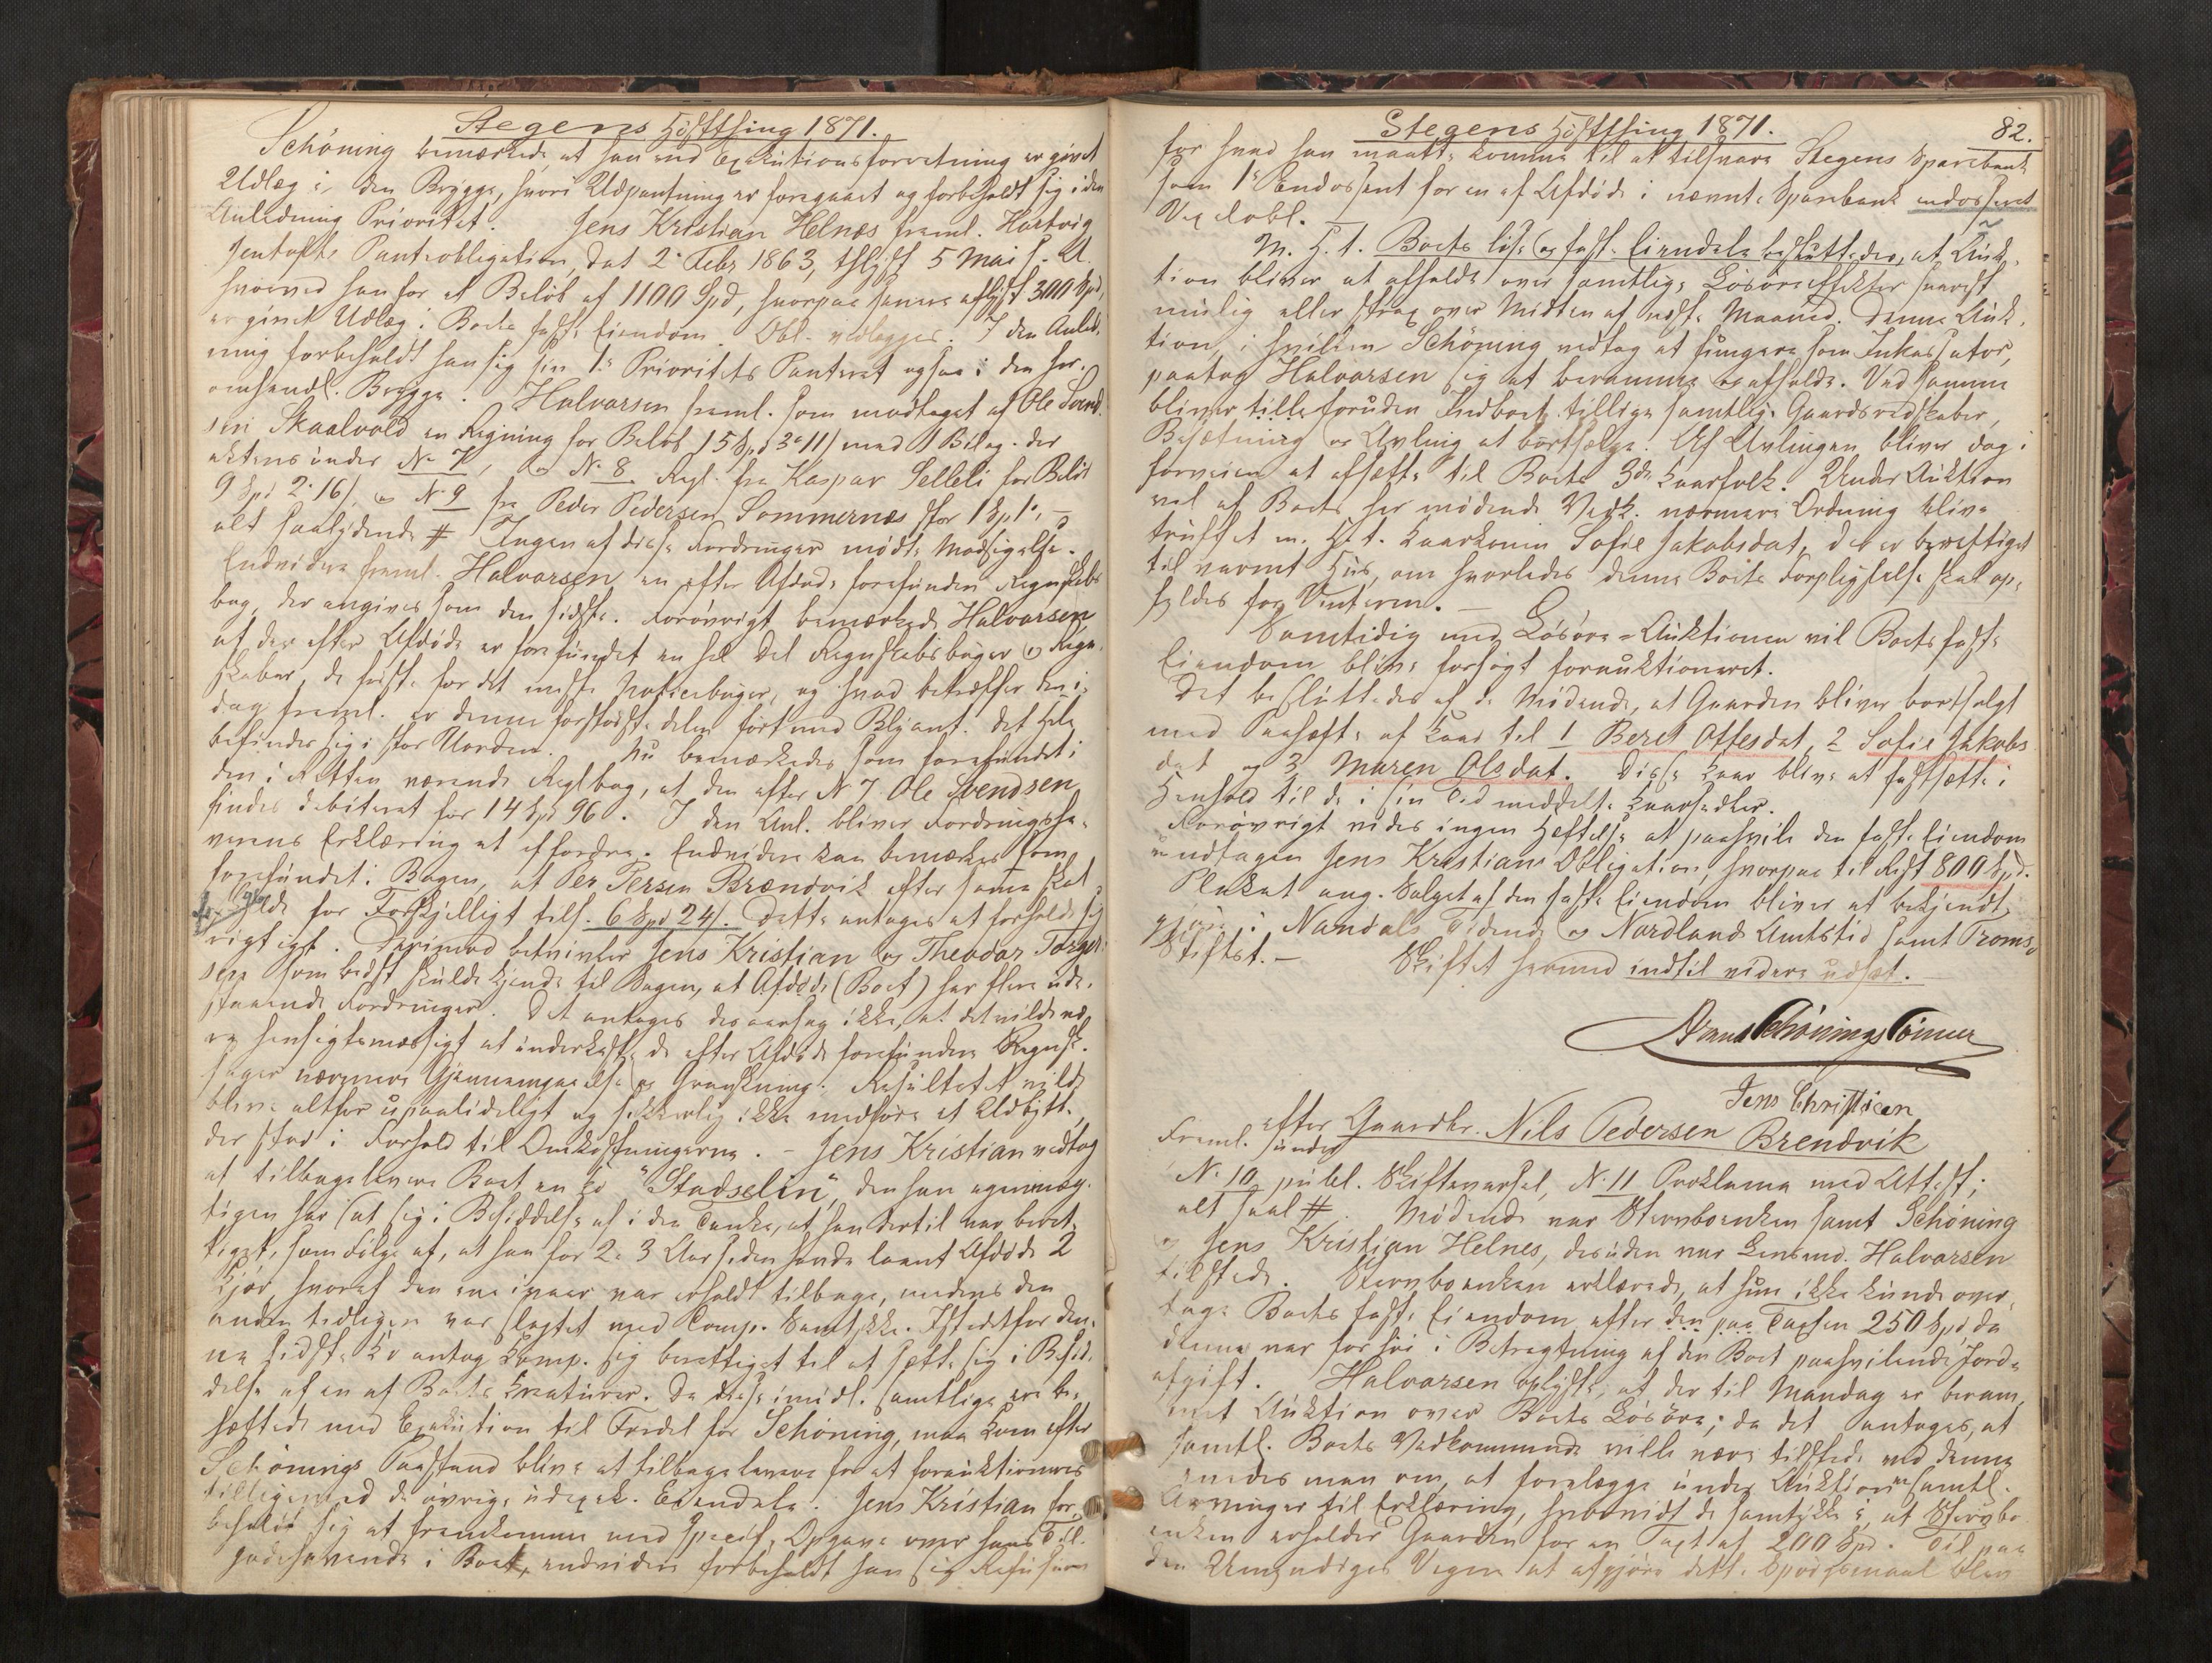 Stegens Høstthing 1871.
Schøning bemærkede, at han ved Exekutionsforretning er givet
Udlæg i den Brygge, hvori Udpantning er foregaaet og forbeholdt sig i den
Anledning Prioritet. Jens Kristian Helnæs freml. Hartvig
Jentofts Panteobligation, dat 2 Febr 1863, thlyst 5 Mai s. A.
hvorved han for et Beløb af 1100 Spd, hvorpaa senere aflyst 300 Spd,
er givet Udlæg i Boets faste Eiendom. Obl. vedlægges. I den Anled-
ning forbeholdt han sig sin 1s Prioritets Panteret ogsaa i den her-
omhandl. Brygge. Halvorsen freml. som modtaget af Ole Svend-
sen Skaalvold en Regning for Beløb 15 Spd 3 11 s med 1 Bilag. der
aktens under No 7, og No 8 Regl. fra Kaspar Selleli for Beløb
9 Spd 2 16 s, og No 9 fra Peder Pedersen Sommernæs stor 1 Sp 1,
alt saalydende # Ingen af disse Fordringer mødte Modsigelse.
Endvidere freml. Halvorsen en efter Afdøde forefunden Regnskabs-
bog, der angives som den sidste. Forøvrigt bemærkede Halvorsen
at der efter Afdøde er forefundet en hel Del Regnskabsbøger og Regn-
skaber, de første for det meste Notisebøger, og hvad betræffer den i
dag freml. er denne forstørste delen ført med Blyant. Det Hele
befinder sig i stor Uorden. Nu bemærkedes som forefundet i
den i Retten værende Reglbog, at den efter N 7 Ole Svendsen
findes debiteret for 14 Spd 96. I den Anl. bliver Fordringsha-
verens Erklæring at affordre. Endvidere kan bemærkes som
forefundet i Bogen, at Per Persen Brændvik efter samme skal
skylde for Forskjelligt tils. 6 Spd 24 s. Dette antages at forholde sig
rigtigt. Derimod betvivler Jens Kristian og Theodor Torger-
sen som bedst skulde kjende til Sagen, at Afdøde (Boet) har flere ude-
staaende Fordringer. Det antages desaarsag ikke, at det vilde væ-
re hensigtsmæssigt at underkaste de efter Afdøde forefundne Regnsk.
sager nærmere Gjennemgaaelse og Granskning. Resultatet vilde
blive altfor upaalideligt og sikkerlig ikke medføre et Udbytte
der stod i Forhold til Omkostningerne. – Jens Kristian vedtog
at tilbagelevere Boet en Ko "Stadselin", den han egenmæg-
tigen har sat sig i Besiddelse af i den Tanke, at han dertil var beret-
tiget, som Følge af, at han for 2 a 3 Aar siden havde laant Afdøde 2
Kjør, hvoraf den ene ivaar var erholdt tilbage, medens den
anden tidligere var slagtet med Comp. Samtykke. Istedetfor den-
ne sidste Ko antog Komp. sig berettiget til at sætte sig i Besid-
delse af en af Boets Kreaturer. Da disse imidl. samtlige ere be-
hæftede med Exekution til Fordel for Schøning, maa Koen efter
Schønings Paastand blive at tilbagelevere for at forauktioneres
tilligemed de øvrige udexek. Eiendele. Jens Kristian for-
beholdt sig at fremkomme med specif. Opgave over hans Til-
godehavende i Boet, endvidere forbeholdt han sig Refusion
Stegens Høstthing 1871.
82.
for hvad han maatte komme til at tilsvare Stegens Sparebank
som 1s Endossent for en af Afdøde i nævnte Sparebank endosseret
Vexelobl.
M. H. t. Boets løse og faste Eiendele besluttedes, at Auk-
tion bliver at afholde over samtlige Løsøreeffekter snarest
mulig eller strax over Midten af næste Maaned. Denne Auk-
tion, i hvilken Schøning vedtog at fungere som Inkassator,
paatog Halvorsen sig at beramme og afholde. Ved samme
bliver tilleforuden Indboet tillige samtlige Gaardsredskaber,
Besætning og Avling at bortsælge. Af Avlingen bliver dog i
forveien at afsætte til Boets 3de Kaarfolk. Under Auktion
vel af Boets her mødende Vedk. nærmere Ordning blive
truffet m. H. t. Kaarkonen Sofie Jakobsdat, der er berettiget
til varmt Hus, om hvorledes denne Boets Forpligtelse skal op-
fyldes for Vinteren. –
Samtidig med Løsøre-Auktionen vil Boets faste
Eiendom blive forsøgt forauktioneret.
Det besluttedes af de Mødende, at Gaarden bliver bortsolgt
med Paahæfte af Kaar til 1 Beret Ottesdat, 2 Sofie Jakobs-
dat og 3 Maren Olsdat. Disse Kaar blive at fastsætte i
Henhold til de i sin Tid meddelte Kaarsedler.
Forøvrigt vides ingen Hæftelse at paahvile den faste Eiendom
undtagen Jens Kristians Obligation, hvorpaa til Rest 800 Spd.
Plakat ang. Salget af den faste Eiendom bliver at bekjendt-
gjøre i Namdals Tidende og Nordlands Amtstid samt Tromsø
Stiftst. – Skiftet herved indtil videre udsat.
Schønings
Jens Christian
efter Gaardbr. Nils Pedersen Brendvik
Freml. under
N. 10 publ. Skiftevarsel, N. 11 Proklama med Attest;
alt saal #. Mødende var Stervboenken samt Schøning
og Jens Kristian Helnes, desuden var Lensmd. Halvorsen
tilstede. Stervboenken erklærede, at hun ikke kunde over-
tage Boets faste Eiendom efter den paa Taxten 250 Spd da
denne var for høi i Betragtning af den Boet paahvilende Jord-
afgift. Halvorsen oplyste, at der til Mandag er beram-
met Auktion over Boets Løsøre; da det antages, at
samtl. Boets Vedkommende ville være tilstede ved denne
enedes man om, at forelægge under Auktionen samtl.
Arvinger til Erklæring, hvorvidt de samtykke i, at Stervbo-
enken erholder Gaarden for en Taxt af 200 Spd. Til paa
den Umyndiges Vegne at afgjøre dette Spørgsmaal blev